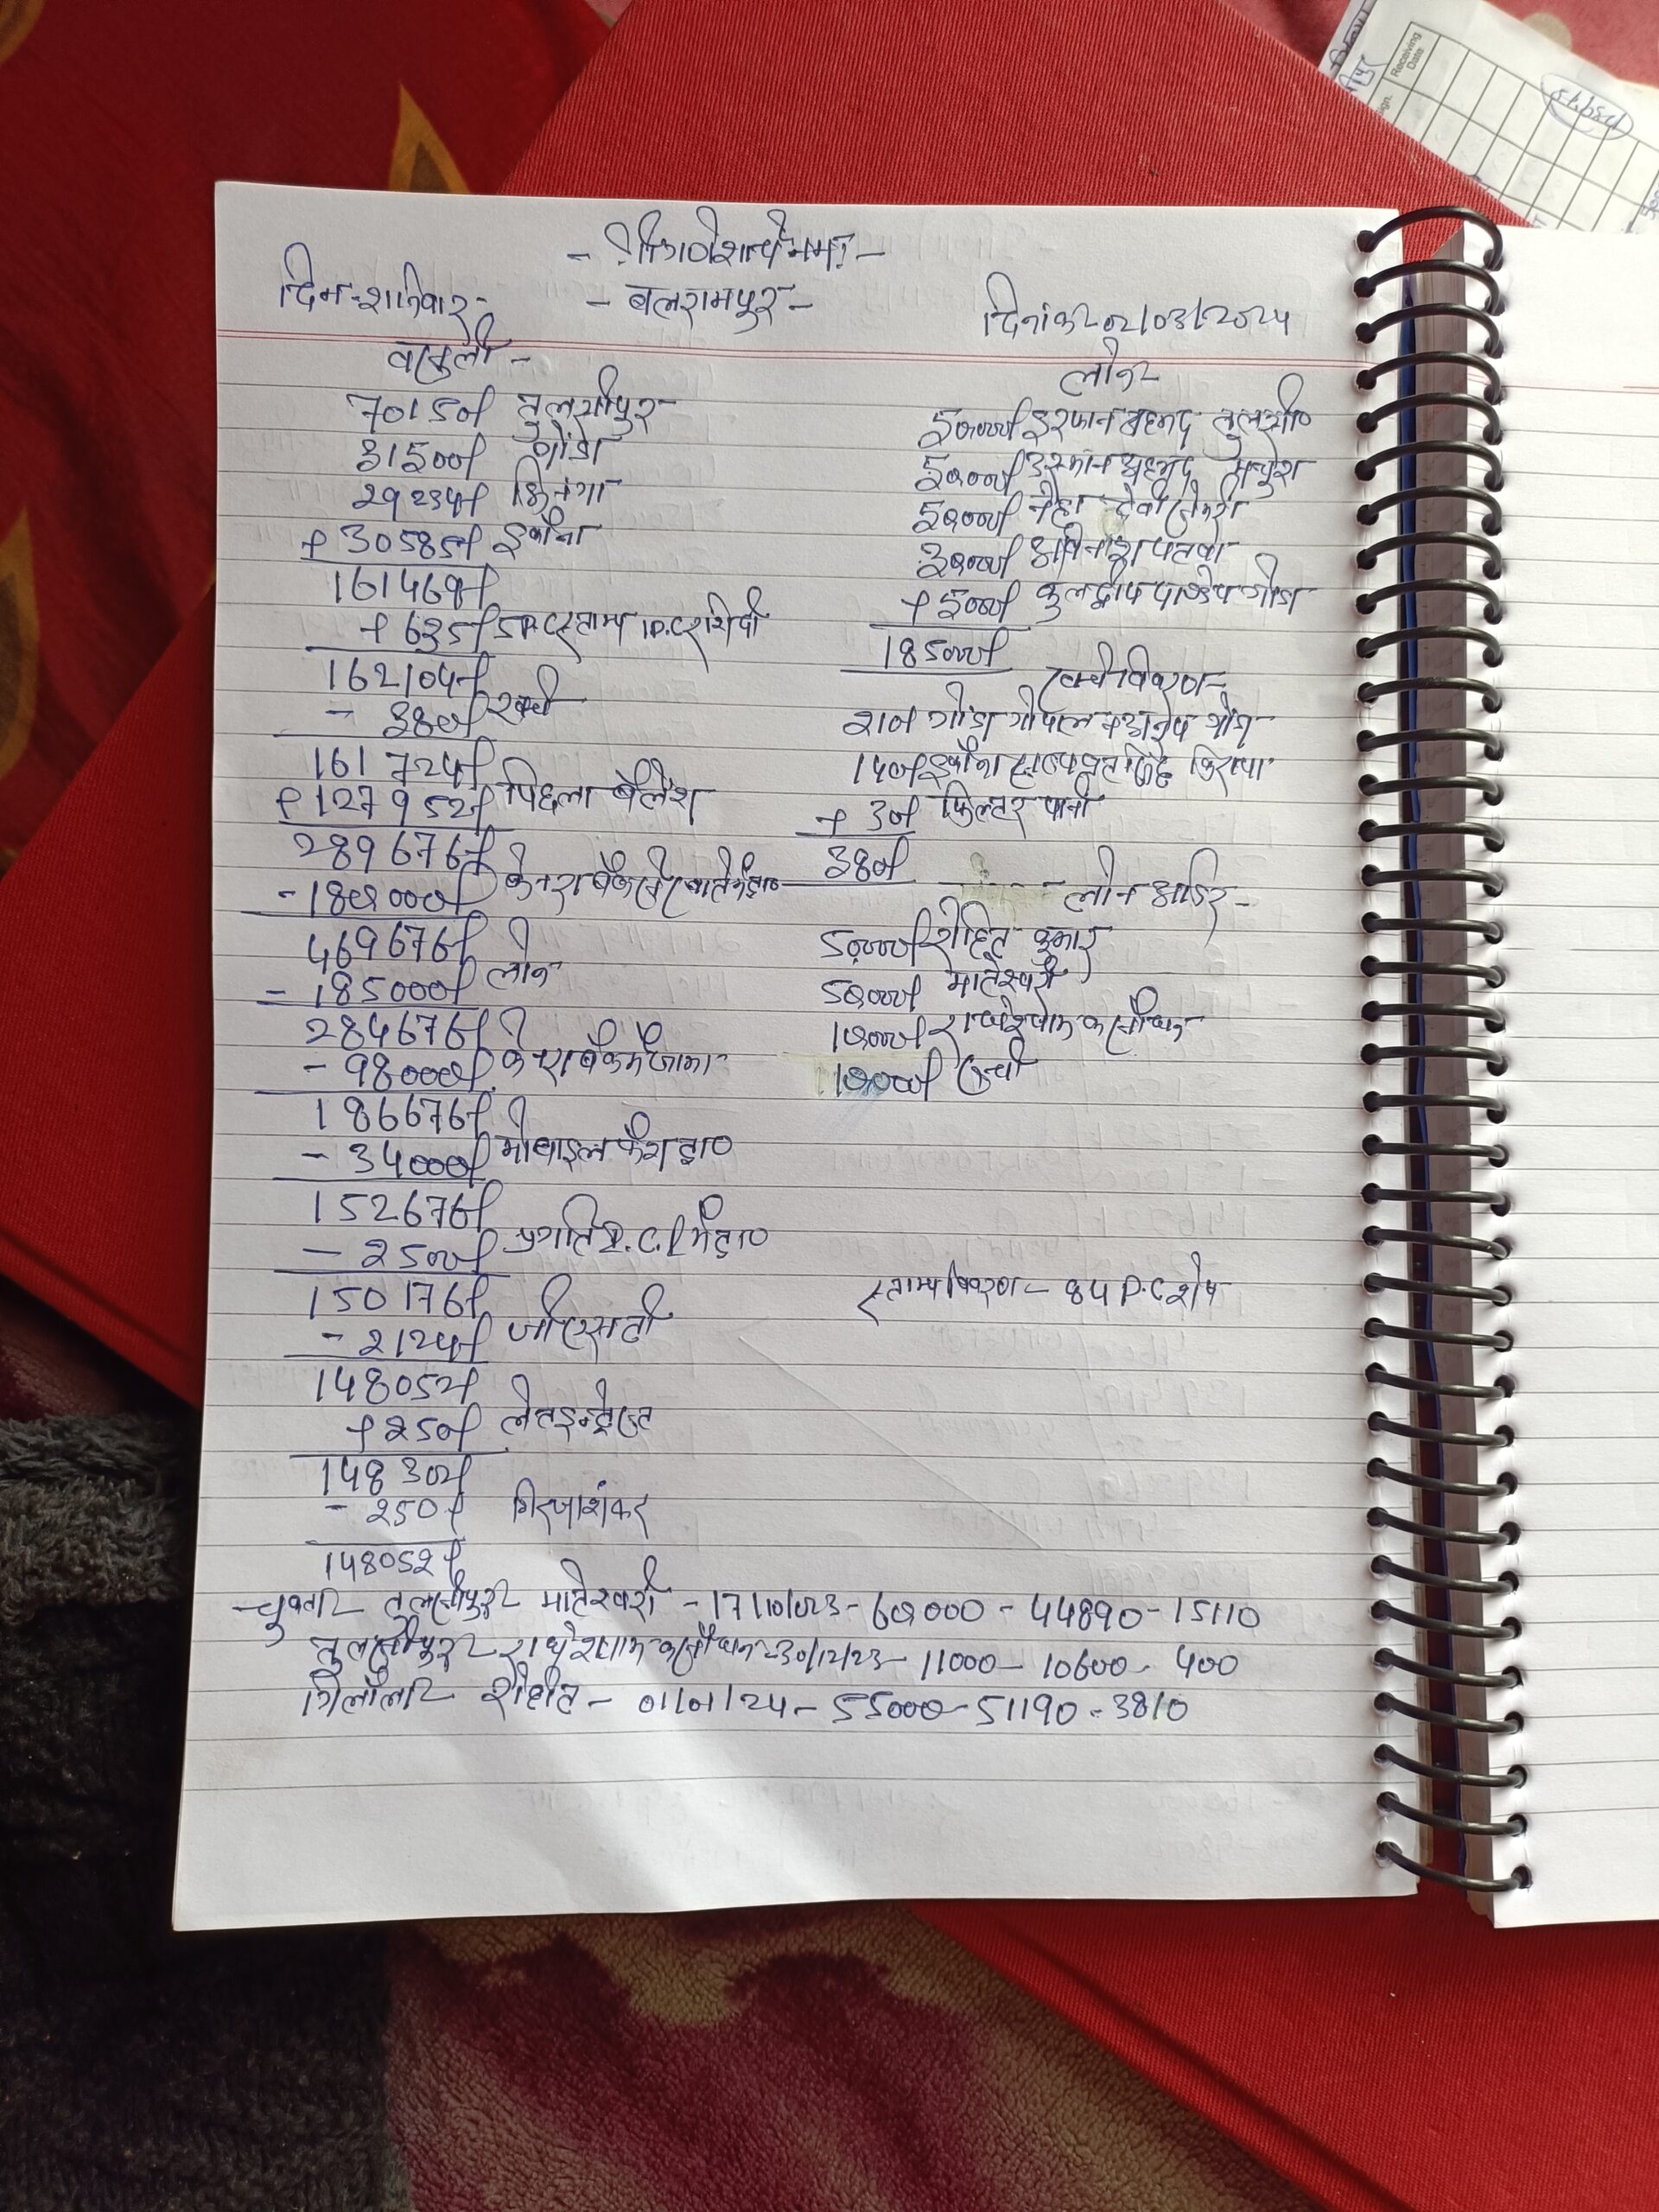 - श्री गणेशाय नमः -
दिन - शनिवार -
- बलरामपुर -
दिनांक - 02/03/2024
वसूली -
70150/ तुलसीपुर
31500/ गोंडा
29234/ भिनगा
+ 30585/ इकौना
161469/
+ 635/ 5 P.C स्टाम्प 1 P.C रसीदी
162104/
- 380/ खर्चा
161724/
+ 127952/ पिछला बैलेंश
289676/
- 180000/ केनरा बैंक से खाते में
469676/
- 185000/ लोन
284676/
- 98000/ केनरा बैंक में जामा
186676/
- 34000/ मोबाइल कैश ट्रा०
152676/
- 2500/ प्रगति में ट्रा०
150176/
- 2124/ जीएसटी
148052/
+ 250/ लेट इन्ट्रेस्ट
148302/
- 250/ गिरजाशंकर
148052/
लोन
50000/ इरफान अहमद तुलसी०
50000/ उस्मान अहमद
50000/ नेहा देवी
30000/ अविनाश
+ 5000/ कुलदीप पाण्डेय गोंडा
185000/
खर्च विवरण -
210/ गोंडा गोपाल गोंडा
140/ इकौना किराया
+ 30/ फिल्टर पानी
380/
- - - - लोन आर्डर -
50000/ रोहित कुमार
50000/ मातेश्वरी
10000/ राधेश्याम कसौधन
10000/
स्ताम्प विवरण - 84 P.C शेष
चुक्ता - तुलसीपुर - मातेश्वरी - 17/10/023 - 60000 - 44890 - 15110
तुलसीपुर - राधेश्याम कसौधन - 30/12/23 - 11000 - 10600 - 400
गिलौला - रोहीत - 01/01/24 - 55000 - 51190 - 3810
Receiving Date